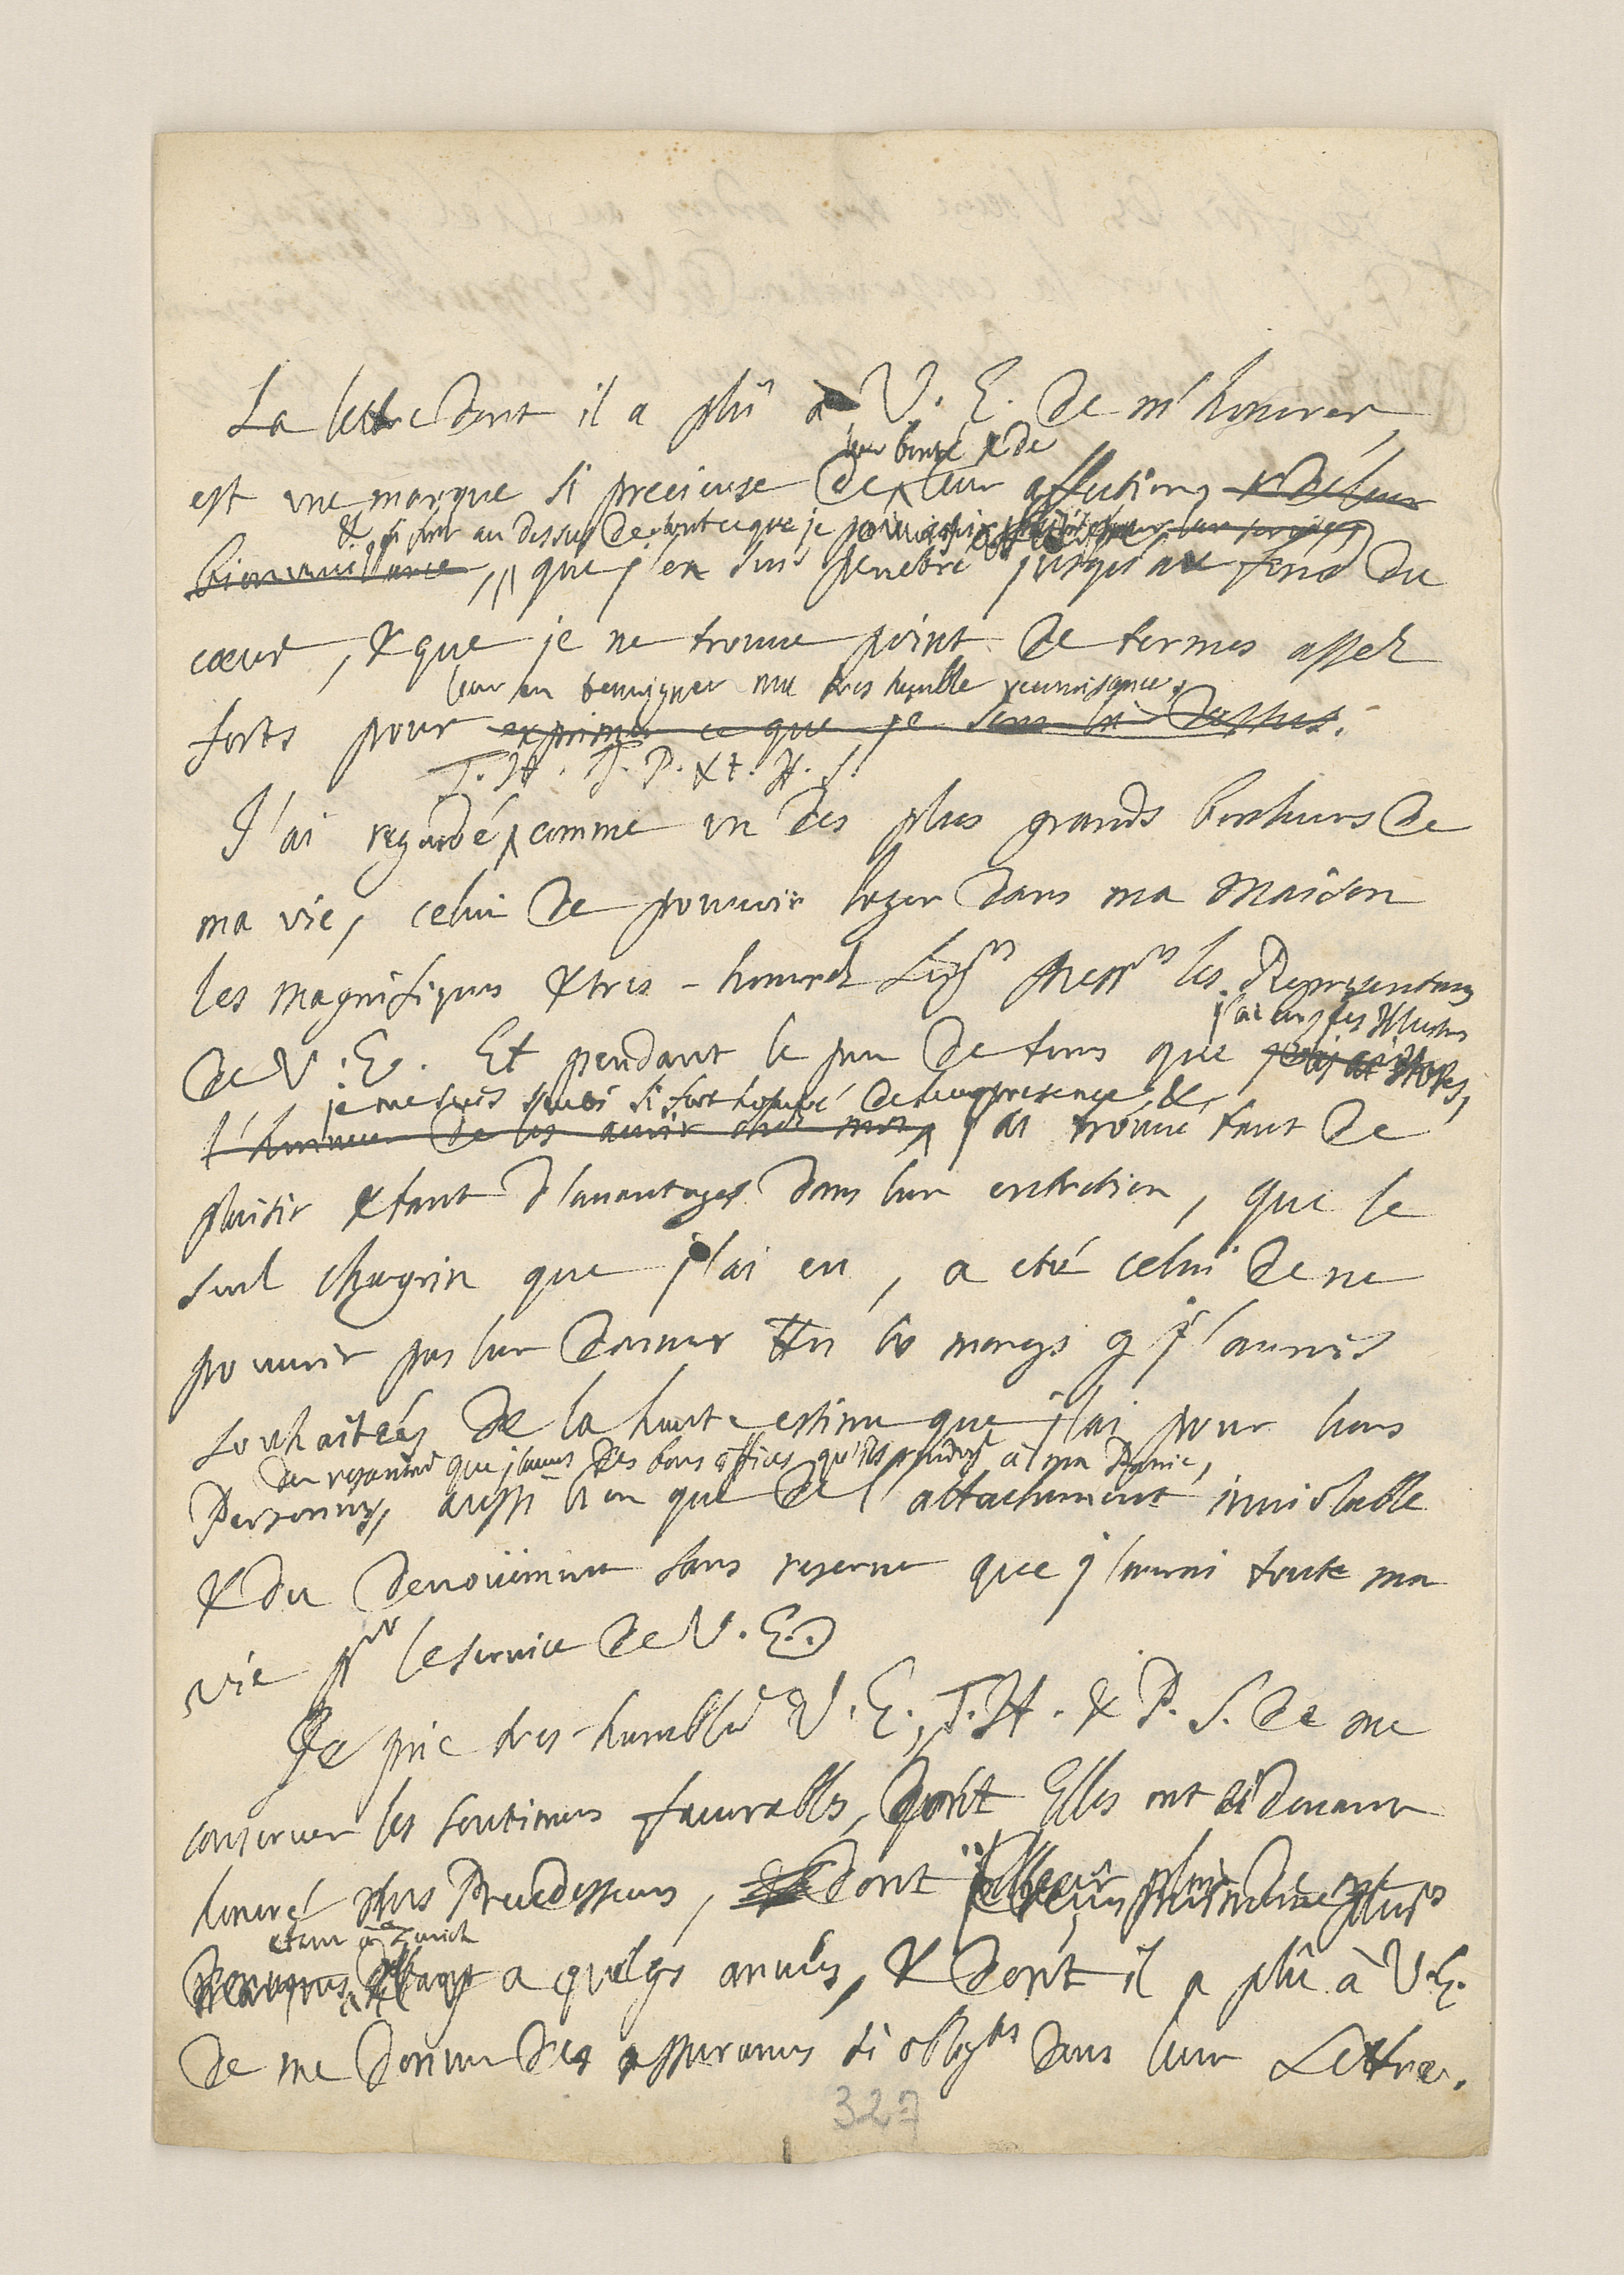 La lettre dont il a plû à V. E. de m'honorer,
leur bonté & de
est une marque si precieuse de leur affection, & de leur
& si fort au dessus de tout ce que je
bienveuillance, que j'en suis penetré jusqu'au fond du
cœur, & que je ne trouve point de termes assez
leur en temoigner ma tres humble reconnoissance.
forts pour exprimer ce que je sens là dessus.
T. H. T. P. & t. H. S.
J'ai regardé comme un des plus grands bonheurs de
ma vie, celui de pouvoir loger dans ma maison
les magnifiques & tres-honorez Sei͠grs Mess^rs les Representans
j'ai eu ces Illustres
de V. E. Et pendant le peu de tems que Hostes,
je me suis si fort honoré de leur presence, &
l'honneur de les avoir chez moi, j'ai trouvé tant de
plaisir & tant d'avantages dans leur entretien, que le
seul chagrin que j'ai eu, a eté celui de ne
pouvoir pas leur donner les marqs q j'aurois
souhaitées de la haute estime que j'ai pour leurs
du que j'aurai des bons offices qu'ils à ma Patrie,
Personnes, aussi bien que de l'attachement inviolable
& du devoüement sans reserve que j'aurai toute ma
vie p^r le service de V. E.
Je prie tres-humblem^t V. E., T. H. & P. S. de me
conserver les sentimens favorables, dont Elles ont ci devant
honoré mes Predecesseurs, dont
etant à Zurich
a quelqs années, & dont il a plû à V. E.
de me donner des assurances si oblig^tes dans leur Lettre.
327